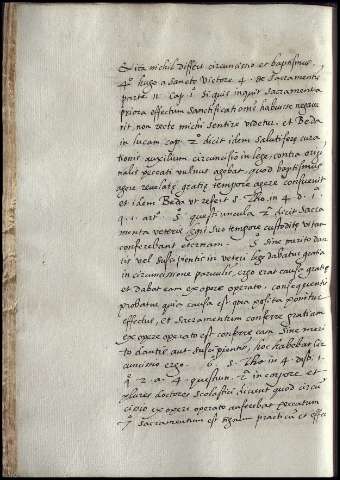 Et ita nichil differt circuncisio et baptismus,
4º hugo a sancto Victore 4. de sacramentis
parte cap. si quis inquit sacramenta
priora effectum sanctificationis habuisse negave
rit, non recte michi sentire videtur. et Beda
in lucam cap. 2º dicit idem salutifere cura
tionis auxilium circuncisio in lege contra origi
nalis peccati vulnus agebat, quod baptismus
agere revelate gratie tempore agere consuevit
et idem Beda ut refert S. Tho. in 4. d. 1.
q. 1. art. 5. questiuncula 2º dicit sacra
menta veteris legis suo tempore custodita vitam
conferebant eternam. 5. sine merito dan
tis vel suscipientis in veteri lege dabatur gratia
in circuncisione parvulis, ergo erat causa gratie
et dabat eam ex opere operato. consequentia
probatur quia causa est qua posita ponitur
effectus, et sacramentum conferre gratiam
ex opere operato est conferre eam sine meri
to dantis aut suscipientis, hoc habebat cir
cuncisio ergo. S. Tho. in 4. dist. 1.
q. 2. a. 4. question. 2ª in corpore et
plures doctores scolastici, dicunt quod circu
cisio ex opere operato auferebat peccatum
sacramentum est signum practicum et effi